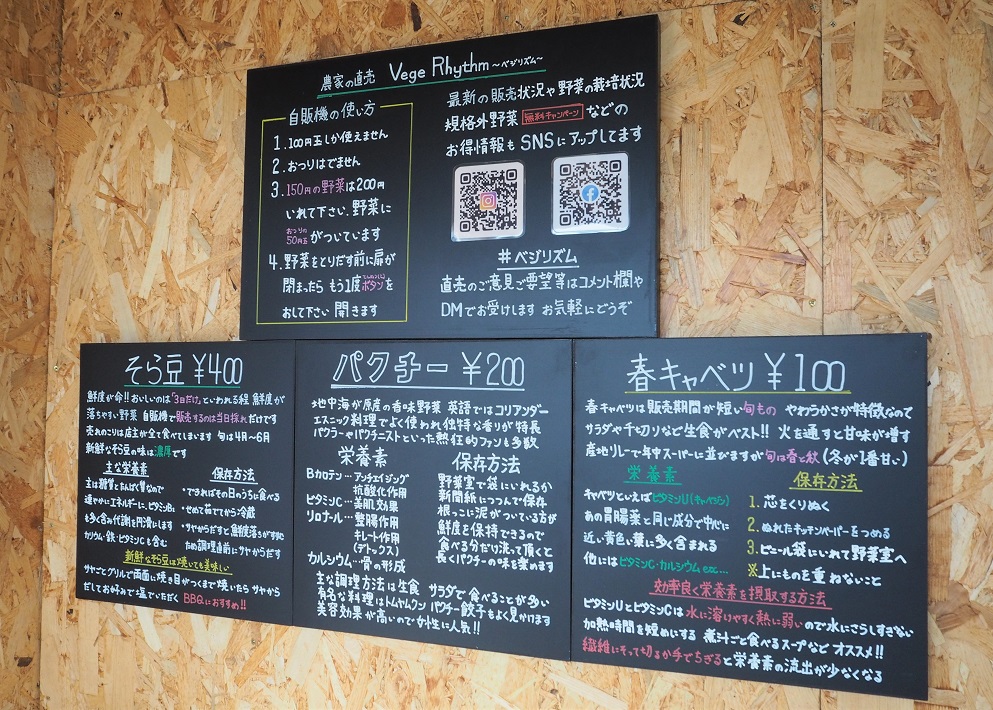 農家の直売 Vege Rhythm ~ベジリズム~
自販機の使い方
1. 100円玉しか使えません
2. おつりはでません
3. 150円の野菜は200円
いれて下さい. 野菜に
おつりの50円玉がついています
4. 野菜をとりだす前に扉が
閉まったら もう1度ボタンを
おして下さい 開きます
最新の販売状況や野菜の栽培状況
規格外野菜 無料キャンペーン などの
お得情報も SNSにアップしてます
#ベジリズム
直売のご意見ご要望等はコメント欄や
DMでお受けします お気軽にどうぞ
そら豆 ¥400
鮮度が命!! おいしいのは"3日だけ"といわれる程 鮮度が
落ちやすい野菜 自販機で販売するのは当日採れだけです
売れのこりは店主が全て食べてしまいます 旬は4月~6月
新鮮なそら豆の味は濃厚です
主な栄養素
主は糖質とたんぱく質なので
速やかにエネルギーに、ビタミンB1
も多く含み代謝を円滑にします
カリウム・鉄・ビタミンCも含む
保存方法
・できればその日のうちに食べる
・せめて茹でてから冷蔵
・サヤからだすと鮮度落ちがすすむ
ため調理直前にサヤからだす
新鮮なそら豆は焼いても美味しい
サヤごとグリルで両面に焼き目がつくまで焼いたら サヤから
だしてお好みで塩でいただく BBQにおすすめ!!
パクチー ¥200
地中海が原産の香味野菜 英語ではコリアンダー
エスニック料理でよく使われ 独特な香りが特長
パクラーやパクチニストといった熱狂的ファンも多数
栄養素
Bカロテン…アンチエイジング
抗酸化作用
ビタミンC…美肌効果
リロナール…整腸作用
キレート作用
(デトックス)
カルシウム…骨の形成
保存方法
野菜室で袋にいれるか
新聞紙につつんで保存
根っこに泥がついている方が
鮮度を保持できるので
食べる分だけ洗って頂くと
長くパクチーの味を楽めます
主な調理方法は生食 サラダで食べることが多い
有名な料理はトムヤムクン パクチー餃子もよく見かけます
美容効果が高いので女性に人気!!
春キャベツ ¥100
春キャベツは販売期間が短い旬もの やわらかさが特徴なので
サラダや千切りなど生食がベスト!! 火を通すと甘味が増す
産地リレーで年中スーパーに並びますが旬は春と秋(冬が1番甘い)
栄養素
キャベツといえばビタミンU(キャベジン)
あの胃腸薬と同じ成分で中心に
近い黄色い葉に多く含まれる
他にはビタミンC・カルシウムetc…
保存方法
1. 芯をくりぬく
2. ぬれたキッチンペーパーをつめる
3. ビニール袋にいれて野菜室へ
※上にものを重ねないこと
効率良く栄養素を摂取する方法
ビタミンUとビタミンCは水に溶けやすく熱に弱いので水にこうしすぎない
加熱時間を短めにする 煮汁ごと食べるスープなどオススメ!!
繊維にそって切るか手でちぎると栄養素の流出が少なくなる